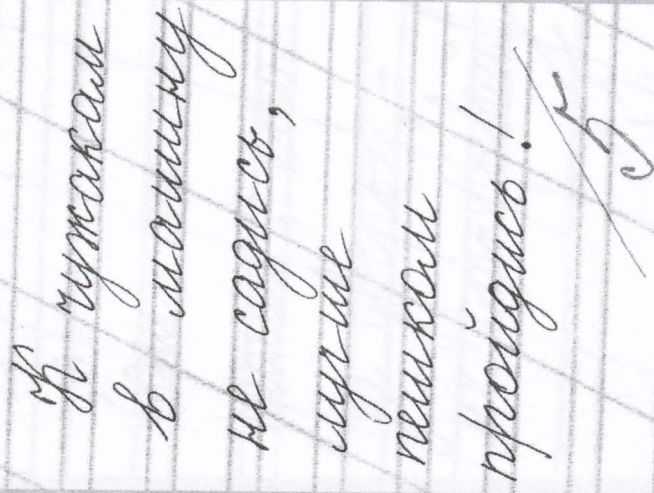 К чужакам
в машину
не садись,
лучше
пешком
пройдись!
5